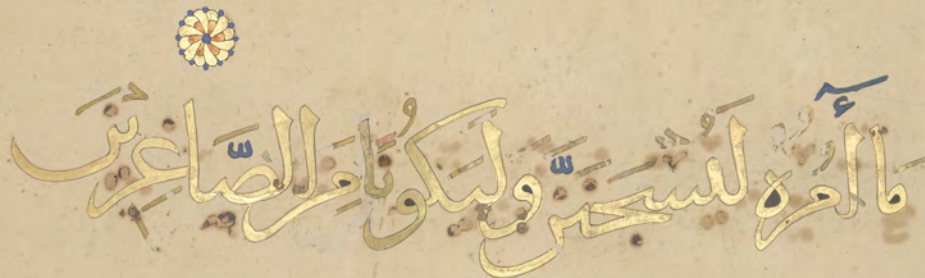 مَآ أَمُرُهُ لَيُسْجَنَنَّ وَلَيَكُونًا مِنَ الصَّاغِرِينَ